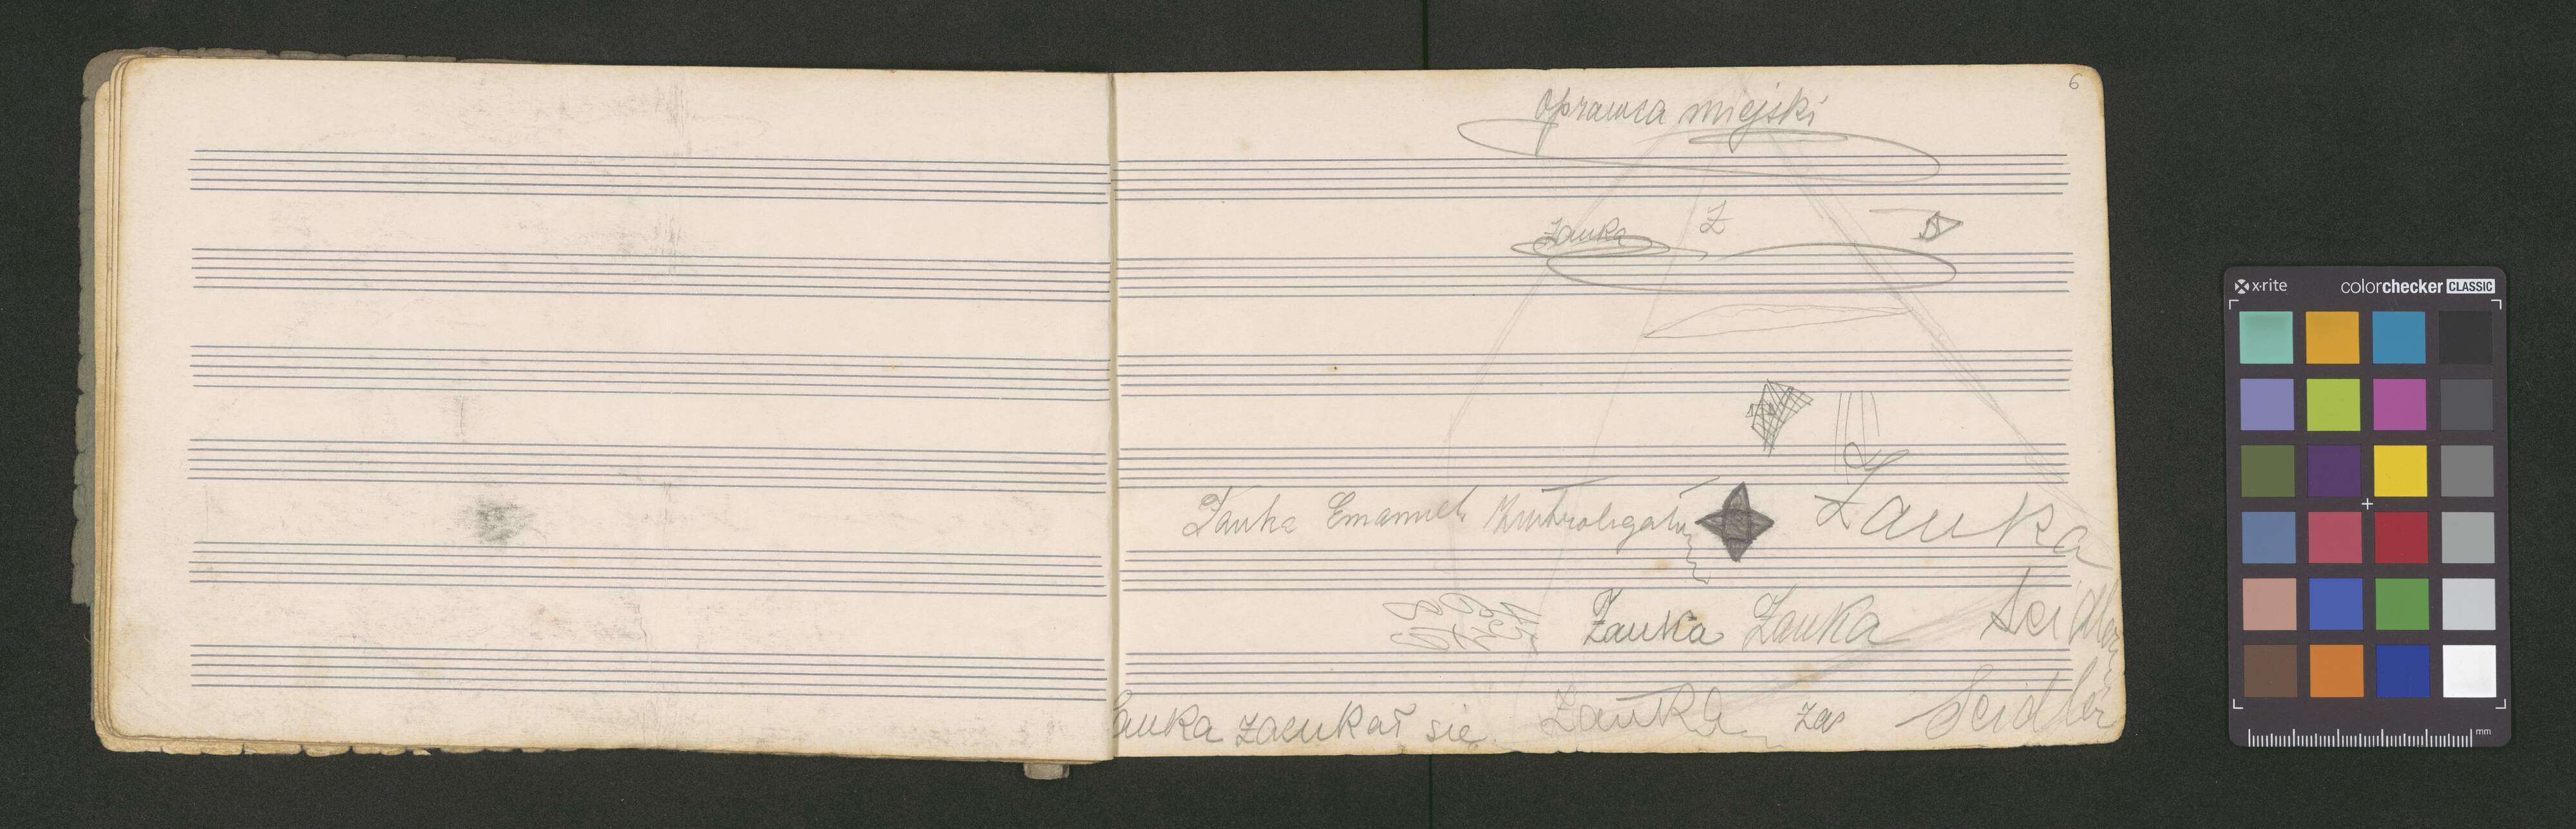 6
oprawca miejski
Zauka Z
Zauka Emanuel
Zauka
Zauka Zauka Seidler
Zauka zaeukał się Zauka zas Seidler
x·rite colorchecker CLASSIC
mm